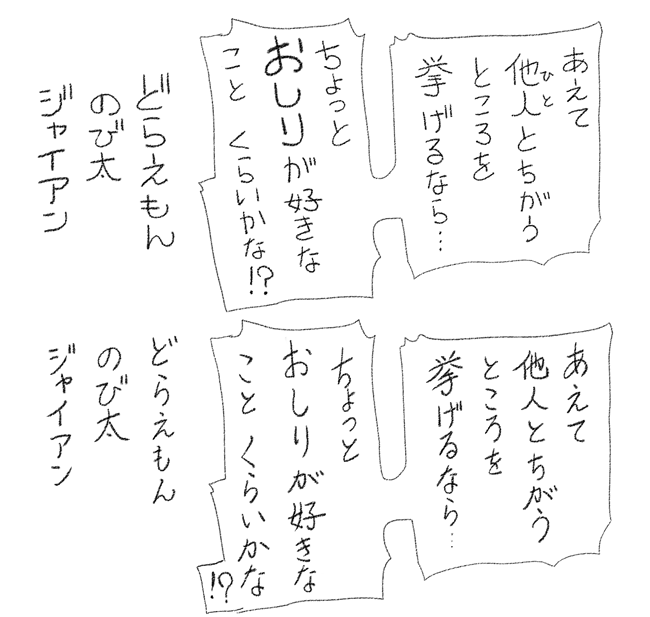 あえて
他人とちがう
ひと
ところを
挙げるなら…
ちょっと
おしりが好きな
こと くらいかな!?
どらえもん
のび太
ジャイアン
あえて
他人とちがう
ところを
挙げるなら…
ちょっと
おしりが好きな
こと くらいかな
!?
どらえもん
のび太
ジャイアン